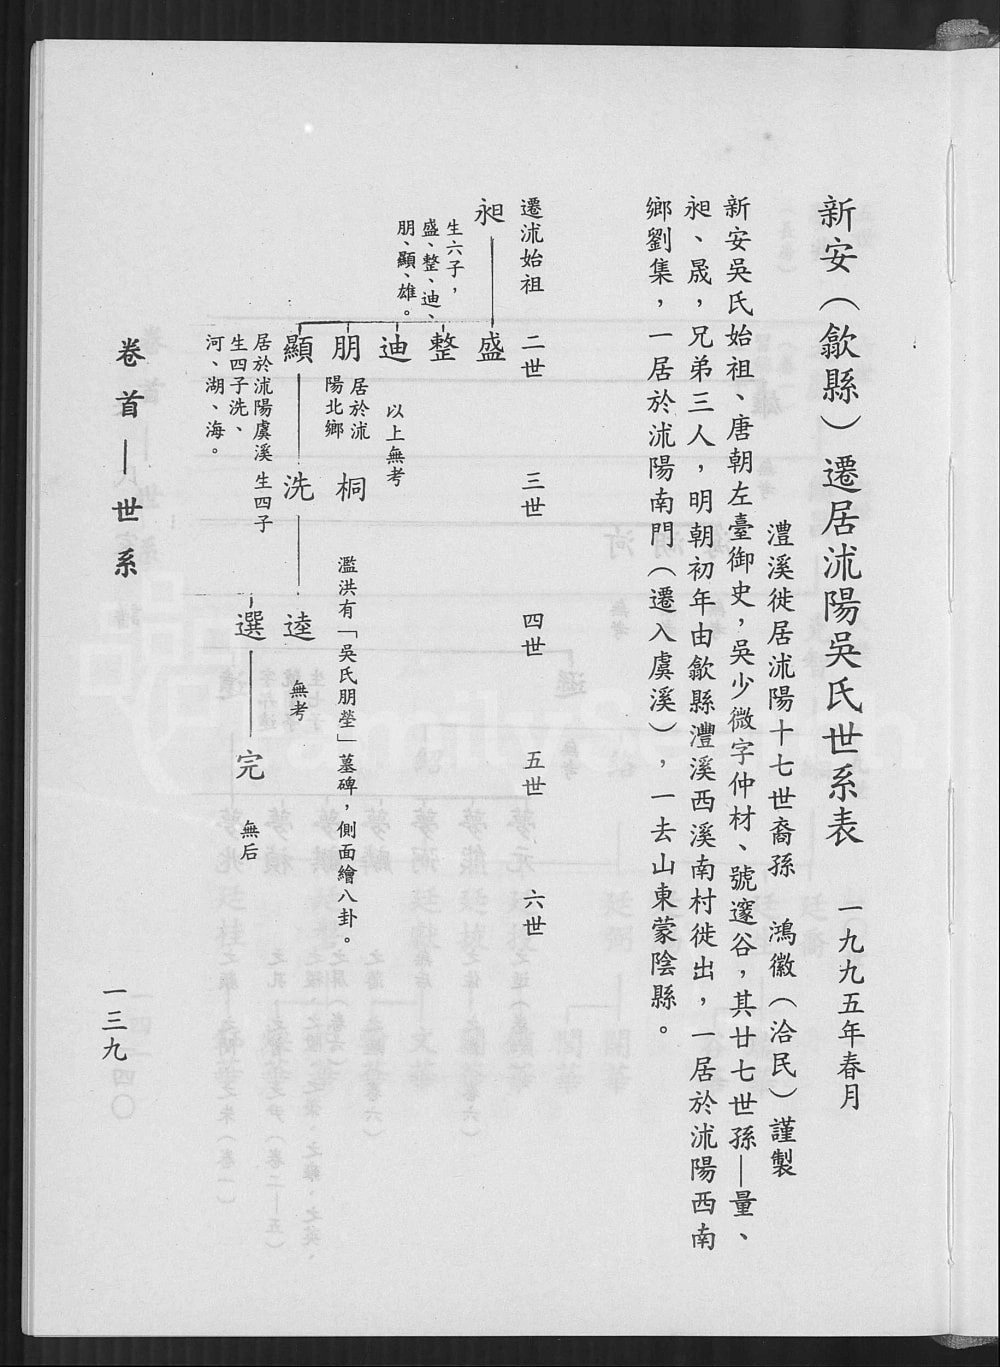 新安（歙縣）遷居沭陽吳氏世系表　一九九五年春月
澧溪徙居沭陽十七世裔孫　鴻徽（洽民）謹製
新安吳氏始祖、唐朝左臺御史，吳少微字仲材、號邃谷，其廿七世孫—量、
昶、晟，兄弟三人，明朝初年由歙縣澧溪西溪南村徙出，一居於沭陽西南
鄉劉集，一居於沭陽南門（遷入虞溪），一去山東蒙陰縣。
遷沭始祖　二世　三世　四世　五世　六世
昶
生六子，
盛、整、迪、
朋、顯、雄。
盛
整
迪
以上無考
朋
居於沭
陽北鄉
桐
濫洪有「吳氏朋塋」墓碑，側面繪八卦。
顯
居於沭陽虞溪
生四子洗、
河、湖、海。
洗
生四子
逵
無考
選
完
無后
卷首—世系
一三九